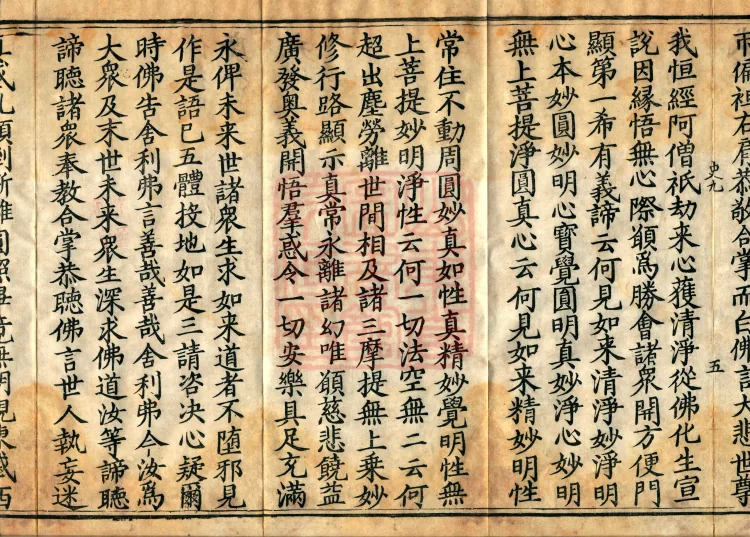 偏袒右肩恭敬合掌而白佛言大悲世尊
史九
五
我恒經阿僧祇劫来心獲清淨從佛化生宣
說因縁悟無心際願爲勝會諸衆開方便門
顯第一希有義諦云何見如来清淨妙淨明
心本妙圓妙明心寶覺圓明真妙淨心妙明
無上菩提淨圓真心云何見如来精妙明性
常住不動周圓妙真如性真精妙覺明性無
上菩提妙明淨性云何一切法空無二云何
超出塵勞離世間相及諸三摩提無上乗妙
修行路顯示真常永離諸幻唯願慈悲饒益
廣發奥義開悟羣惑令一切安樂具足充滿
永俾未来世諸衆生求如来道者不墮邪見
作是語已五體投地如是三請咨决心疑爾
時佛告舍利弗言善哉善哉舍利弗今汝爲
大衆及末世未来衆生深求佛道汝等諦聽
諦聽諸衆奉教合掌恭聽佛言世人執妄迷